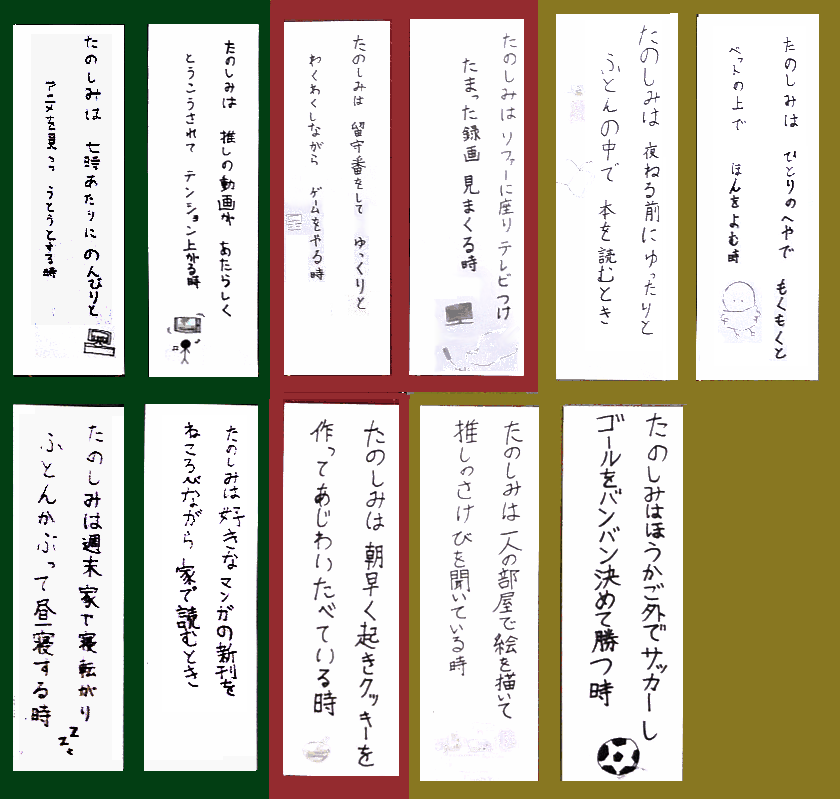 たのしみは ひとりのへやで もくもくと
ベットの上で ほんをよむ時
たのしみは 夜ねる前に ゆったりと
ふとんの中で 本を読むとき
たのしみは ソファーに座り テレビつけ
たまった録画 見まくる時
たのしみは 留守番をして ゆっくりと
わくわくしながら ゲームをやる時
たのしみは 推しの動画が あたらしく
とうこうされて テンション上がる時
たのしみは 七時あたりに のんびりと
アニメを見つつ うとうとする時
たのしみはほうかご外でサッカーし
ゴールをバンバン決めて勝つ時
たのしみは一人の部屋で絵を描いて
推しのさけびを聞いている時
たのしみは 朝早く起きクッキーを
作ってあじわいたべている時
たのしみは好きな マンガの新刊を
ねころびながら 家で読むとき
たのしみは週末家で寝転がり
ふとんかぶって昼寝する時
zzz